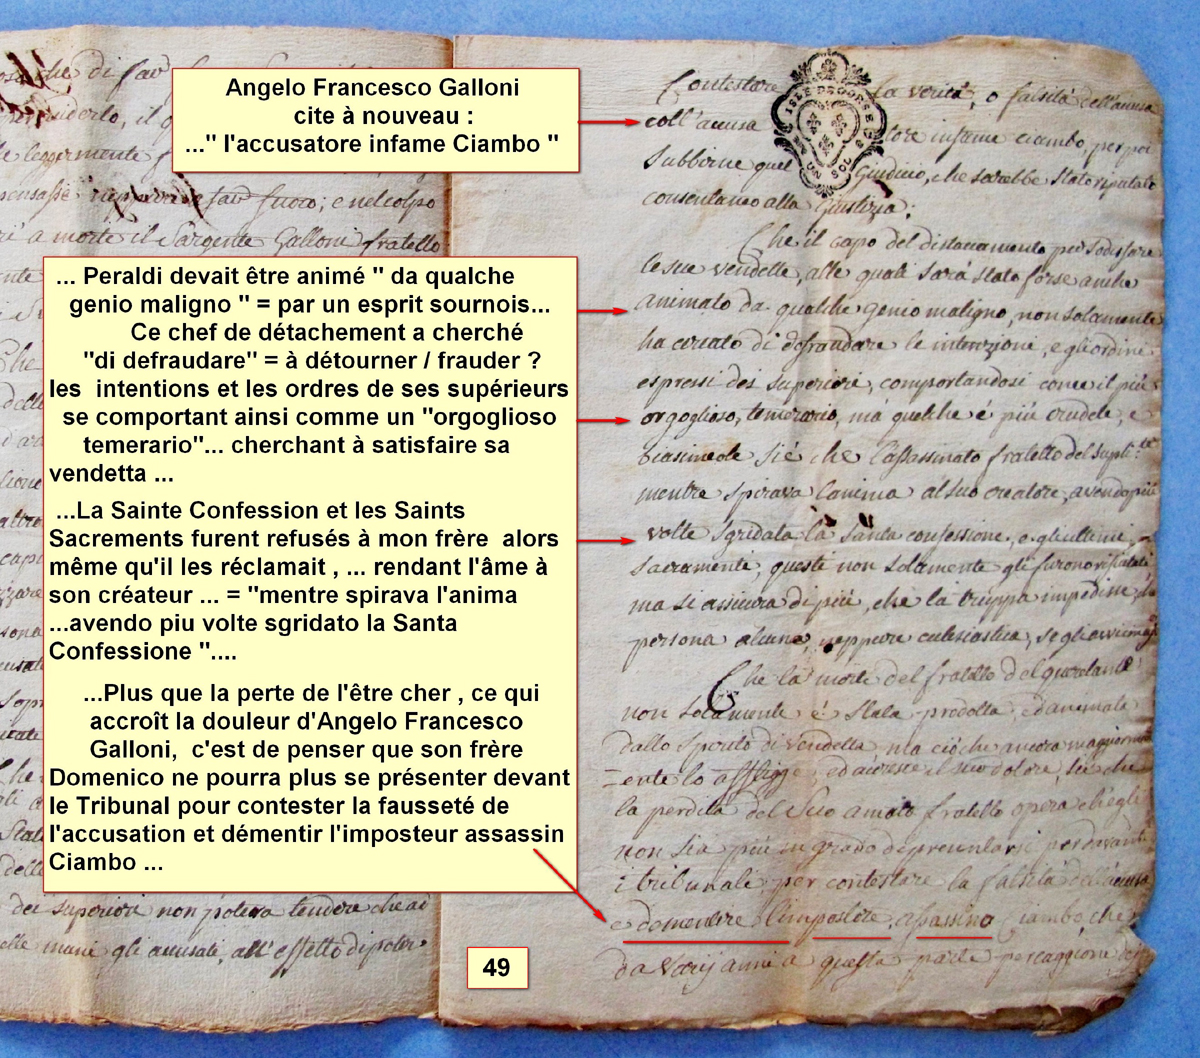 Angelo Francesco Galloni
cite à nouveau :
..." l'accusatore infame Ciambo "
... Peraldi devait être animé " da qualche
genio maligno " = par un esprit sournois...
Ce chef de détachement a cherché
"di defraudare" = à détourner / frauder ?
les intentions et les ordres de ses supérieurs
se comportant ainsi comme un "orgoglioso
temerario"... cherchant à satisfaire sa
vendetta ...
...La Sainte Confession et les Saints
Sacrements furent refusés à mon frère alors
même qu'il les réclamait , ... rendant l'âme à
son créateur ... = "mentre spirava l'anima
...avendo piu volte sgridato la Santa
Confessione "....
...Plus que la perte de l'être cher , ce qui
accroît la douleur d'Angelo Francesco
Galloni, c'est de penser que son frère
Domenico ne pourra plus se présenter devant
le Tribunal pour contester la fausseté de
l'accusation et démentir l'imposteur assassin
Ciambo ...
49
che di
il
leggermente
fuoco; e nel colpo
a morte il Sargente Galloni fratello
dei superiori non poteva tendere che ad
mani gli accusati, all'effetto di poter
Contestare la verità, o falsità dell'accusa
coll'accusatore infame ciambo, per poi
Subbirne quel Giudicio, che sarebbe stato riputato
consentaneo alla Giustizia;
ISLE DE CORSE
UN SOL
Che il capo del distaccamento per sodisfare
le sue vendette, alle quali sarà stato forse anche
animato da qualche genio maligno, non solamente
ha cercato di defraudare le intenzioni, e gli ordini
espressi dei superiori, comportandosi come il più
orgoglioso, temerario, mà quelche é più crudele, e
biasimeole si é che l'assassinato fratello del suplic.te
mentre spirava l'anima al suo creatore, avendo più
volte sgridata la santa confessione, e gli ultimi
sacramenti, questi non solamente gli furono rifiutati
ma si assicura di più, che la truppa impedisse, che
persona alcuna, neppure eclesiastica, se gli avvicinasse
Che la morte del fratello del querelante
non solamente é stata prodotta, ed animata
dallo spirito di vendetta, ma ciò che ancora maggiorm
=ente lo affligge, ed accresce il suo dolore, si é che
la perdita del suo amato fratello opera ch'egli
non sia più in grado di presentarsi per davanti
i tribunali per contestare la falsità dell'accusa
e domentire l'impostore, assassino Ciambo che
da varij anni a questa parte per caggione